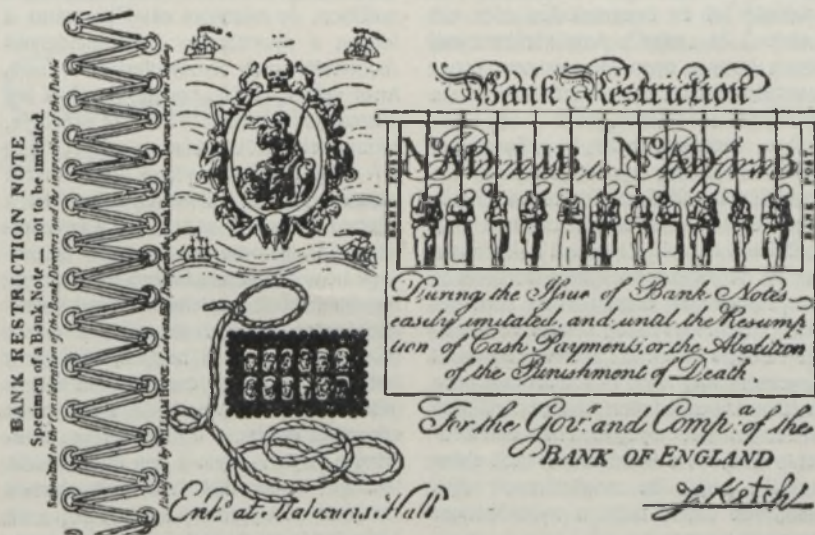 BANK RESTRICTION NOTE
Specimen of a Bank Note — not to be imitated.
Submitted to the Consideration of the Bank Directors and the inspection of the Public
Bank Restriction
BANK POST
No. AD LIB No. AD LIB
Promise to Perform
BANK POST
During the Issue of Bank Notes
easily imitated, and until the Resump
tion of Cash Payments, or the Abolition
of the Punishment of Death
For the Govr. and Compa. of the
BANK OF ENGLAND
J. Ketch
Entd. at Stationers Hall